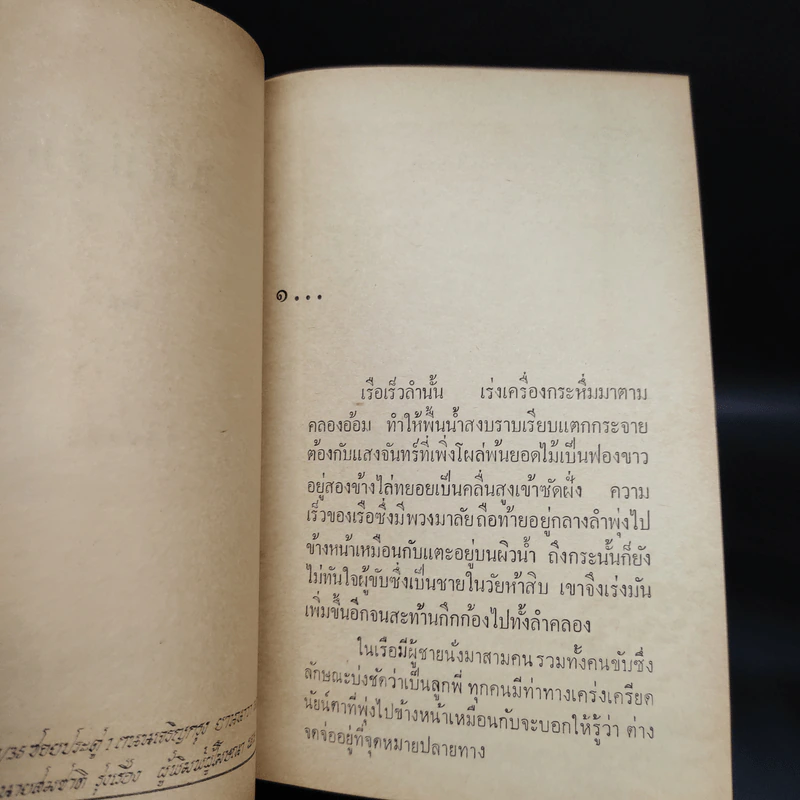 ๑...
เรือเร็วลำนั้น เร่งเครื่องกระหึ่มมาตาม
คลองอ้อม ทำให้พื้นน้ำสงบราบเรียบแตกกระจาย
ต้องกับแสงจันทร์ที่เพิ่งโผล่พ้นยอดไม้เป็นฟองขาว
อยู่สองข้างไล่ทยอยเป็นคลื่นสูงเข้าซัดฝั่ง ความ
เร็วของเรือซึ่งมีพวงมาลัยถือท้ายอยู่กลางลำพุ่งไป
ข้างหน้าเหมือนกับแตะอยู่บนผิวน้ำ ถึงกระนั้นก็ยัง
ไม่ทันใจผู้ขับซึ่งเป็นชายในวัยห้าสิบ เขาจึงเร่งมัน
เพิ่มขึ้นอีกจนสะท้านกึกก้องไปทั้งลำคลอง
ในเรือมีผู้ชายนั่งมาสามคน รวมทั้งคนขับซึ่ง
ลักษณะบ่งชัดว่าเป็นลูกพี่ ทุกคนมีท่าทางเคร่งเครียด
นัยน์ตาที่พุ่งไปข้างหน้าเหมือนกับจะบอกให้รู้ว่า ต่าง
จดจ่ออยู่ที่จุดหมายปลายทาง
ซอยประดู่ ๑ ถนนเจริญกรุง ยานนาวา
นายสมชาติ รุ่งเรือง ผู้พิมพ์ผู้โฆษณา